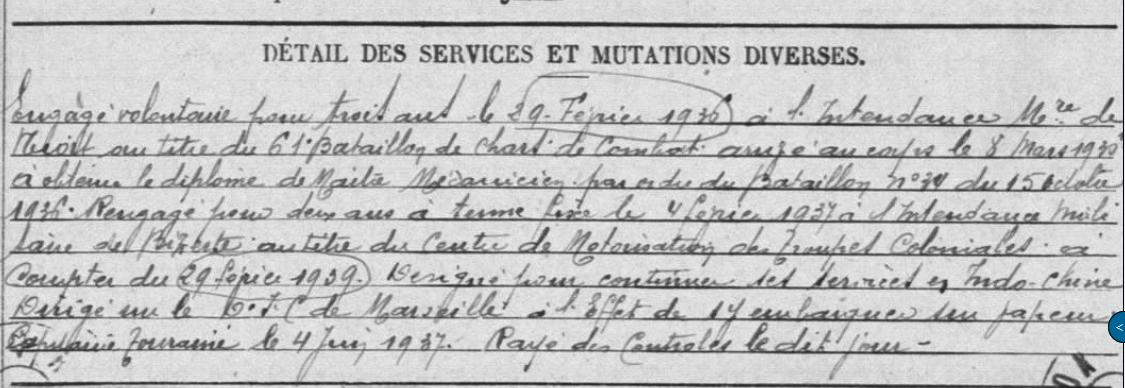 DÉTAIL DES SERVICES ET MUTATIONS DIVERSES.
Engagé volontaire pour trois ans le 29 Février 1936 à l'Intendance Mre de
au titre du 61e Bataillon de chars de Combat arrivé au corps le 8 Mars 1936
à obtenu le diplome de Maitre Mécanicien par ordre du Bataillon n° 34 du 15 Octobre
1936. Rengagé pour deux ans à terme fixe le 4 Février 1937 à l'Intendance Mili
taire de Bizerte au titre du Centre de Motorisation des Troupes Coloniales à
Compter du 29 février 1939. Désigné pour continuer ses services en Indo-chine
Dirigé sur le D.T.C de Marseille à l'Effet de s'y embarquer sur
le 4 Juin 1937. Rayé des Controles le dit jour -